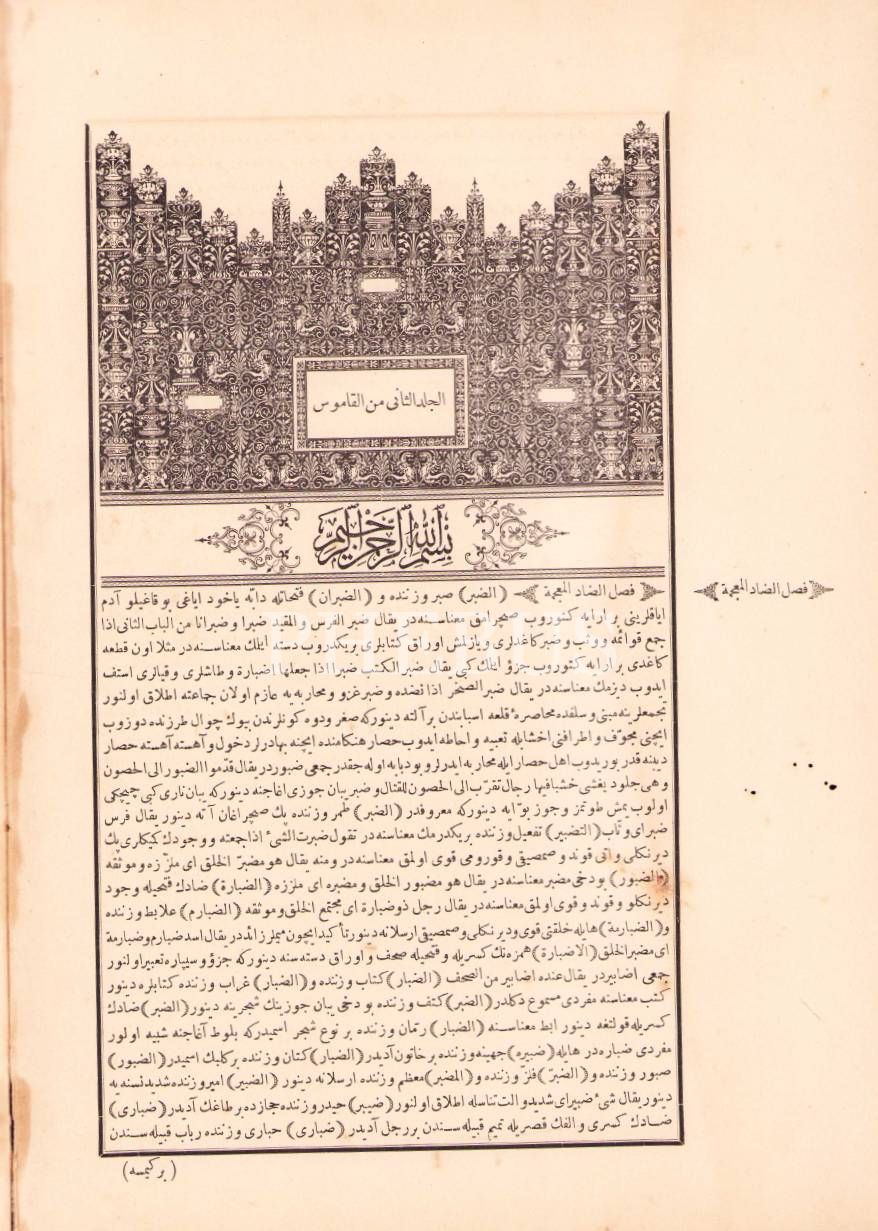 الجلد الثانى من القاموس
بسم الله الرحمن الرحيم
فصل الضاد المعجمة (الضبر) صبر وزنده و (الضبران) فتحاتله دابه ياخود اياغى بوقاغيلو آدم
فصل الضاد المعجمة
اياقلرينى بر ارايه كتوروب صيچرامق معناسنه در يقال ضبر الفرس و المقيد ضبرا و ضبرانا من الباب الثانى اذا
جمع قوائمه ووثب و ضبر كاغدلرى و يازلمش اوراق كتابلرى بريكدروب دسته ايلك معناسنه در مثلا اون قطعه
كاغدى بر ارايه كتوروب جزؤ ايلك كبى يقال ضبر الكتب ضبرا اذا جعلها اضبارة و طاشلرى و قيالرى استف
ايدوب ديزمك معناسنه در يقال ضبر الصخر اذا نضده و ضبر غزو و محاربه يه عازم اولان جماعته اطلاق اولنور
تجمعلرينه مبنى و سلفده محاصرۀ قلعه اسبابندن بر آلته دينور كه صغر و دوه كونلرندن بيوك چوال طرزنده دوزوب
ايچنى مجوف و اطرافنى اخشابله تعبيه و احاطه ايدوب حصار هنكامنده ايچنه بهادرلر دخول و آهسته آهسته حصار
ديبنه قدر يوريدوب اهل حصار ايله محاربه ايدرلر و بو دبابه اوله جقدر جمعى ضبور در يقال قدموا الضبور الى الحصون
و هى جلود يغشى خشبا فيها رجال تقرب الى الحصون للقتال و ضبر يبان جوزى اغاجنه دينور كه يبان نارى كبى چيچكى
اولوب يمش طوتمز و جوز بوّايه دينور كه معروفدر (الضبر) طمر وزنده پك صيچراغان آته دينور يقال فرس
ضبر اى وثاب (التضبير) تفعيل وزنده بريكدرمك معناسنه در تقول ضبرت الشئ اذا جمعته و وجودك كيكلرى پك
ديرنكلى و اتى قوند و صمصيقى و قورومى قوى اولمق معناسنه در ومنه يقال هو مضبر الخلق اى ملززه و موثقه
(والضبور) بو دخى مضبر معناسنه در يقال هو مضبور الخلق و مضبره اى ملززه (الضبارة) ضادك فتحيله وجود
ديرنكلو و قوند و قوى اولمق معناسنه در يقال رجل ذو ضبارة اى مجتمع الخلق و موثقه (الضبارم) علابط وزنده
و (الضبارمة) هايله خلقتى قوى و ديرنكلى و صمصيقى ارسلانه دينور تأكيد ايچون ميملر زائددر يقال اسد ضبارم و ضبارمة
اى مضبر الخلق (الاضبارة) همزه نك كسريله و فتحيله صحف و اوراق دسته سنه دينور كه جزؤ و سيپاره تعبير اولنور
جمعى اضابير در يقال عنده اضابير من الصحف (الضبار) كتاب وزنده و (الضبار) غراب وزنده كتابلره دينور
كتب معناسنه مفردى مسموع دكلدر (الضبر) كتف وزنده بو دخى يبان جوزينك شجرينه دينور (الضبر) ضادك
كسريله قولتغه دينور ابط معناسنه (الضبار) رمان وزنده بر نوع شجر اسميدر كه بلوط آغاجنه شبيه اولور
مفردى ضباره در هايله (ضبيره) جهينه وزنده بر خاتون آديدر (الضبار) كتان وزنده بر كلبك اسميدر (الضبور)
صبور وزنده و (الضبر) فلز وزنده و (المضبر) معظم وزنده ارسلانه دينور (الضبير) امير وزنده شديد نسنه يه
دينور يقال شئ ضبير اى شديد و آلت تناسله اطلاق اولنور (ضيبر) حيدر وزنده حجازده بر طاغك آديدر (ضبارى)
ضادك كسرى و الفك قصريله تميم قبيله سندن بر رجل آديدر (ضبارى) حبارى وزنده رباب قبيله سندن
(بر كيمسه)